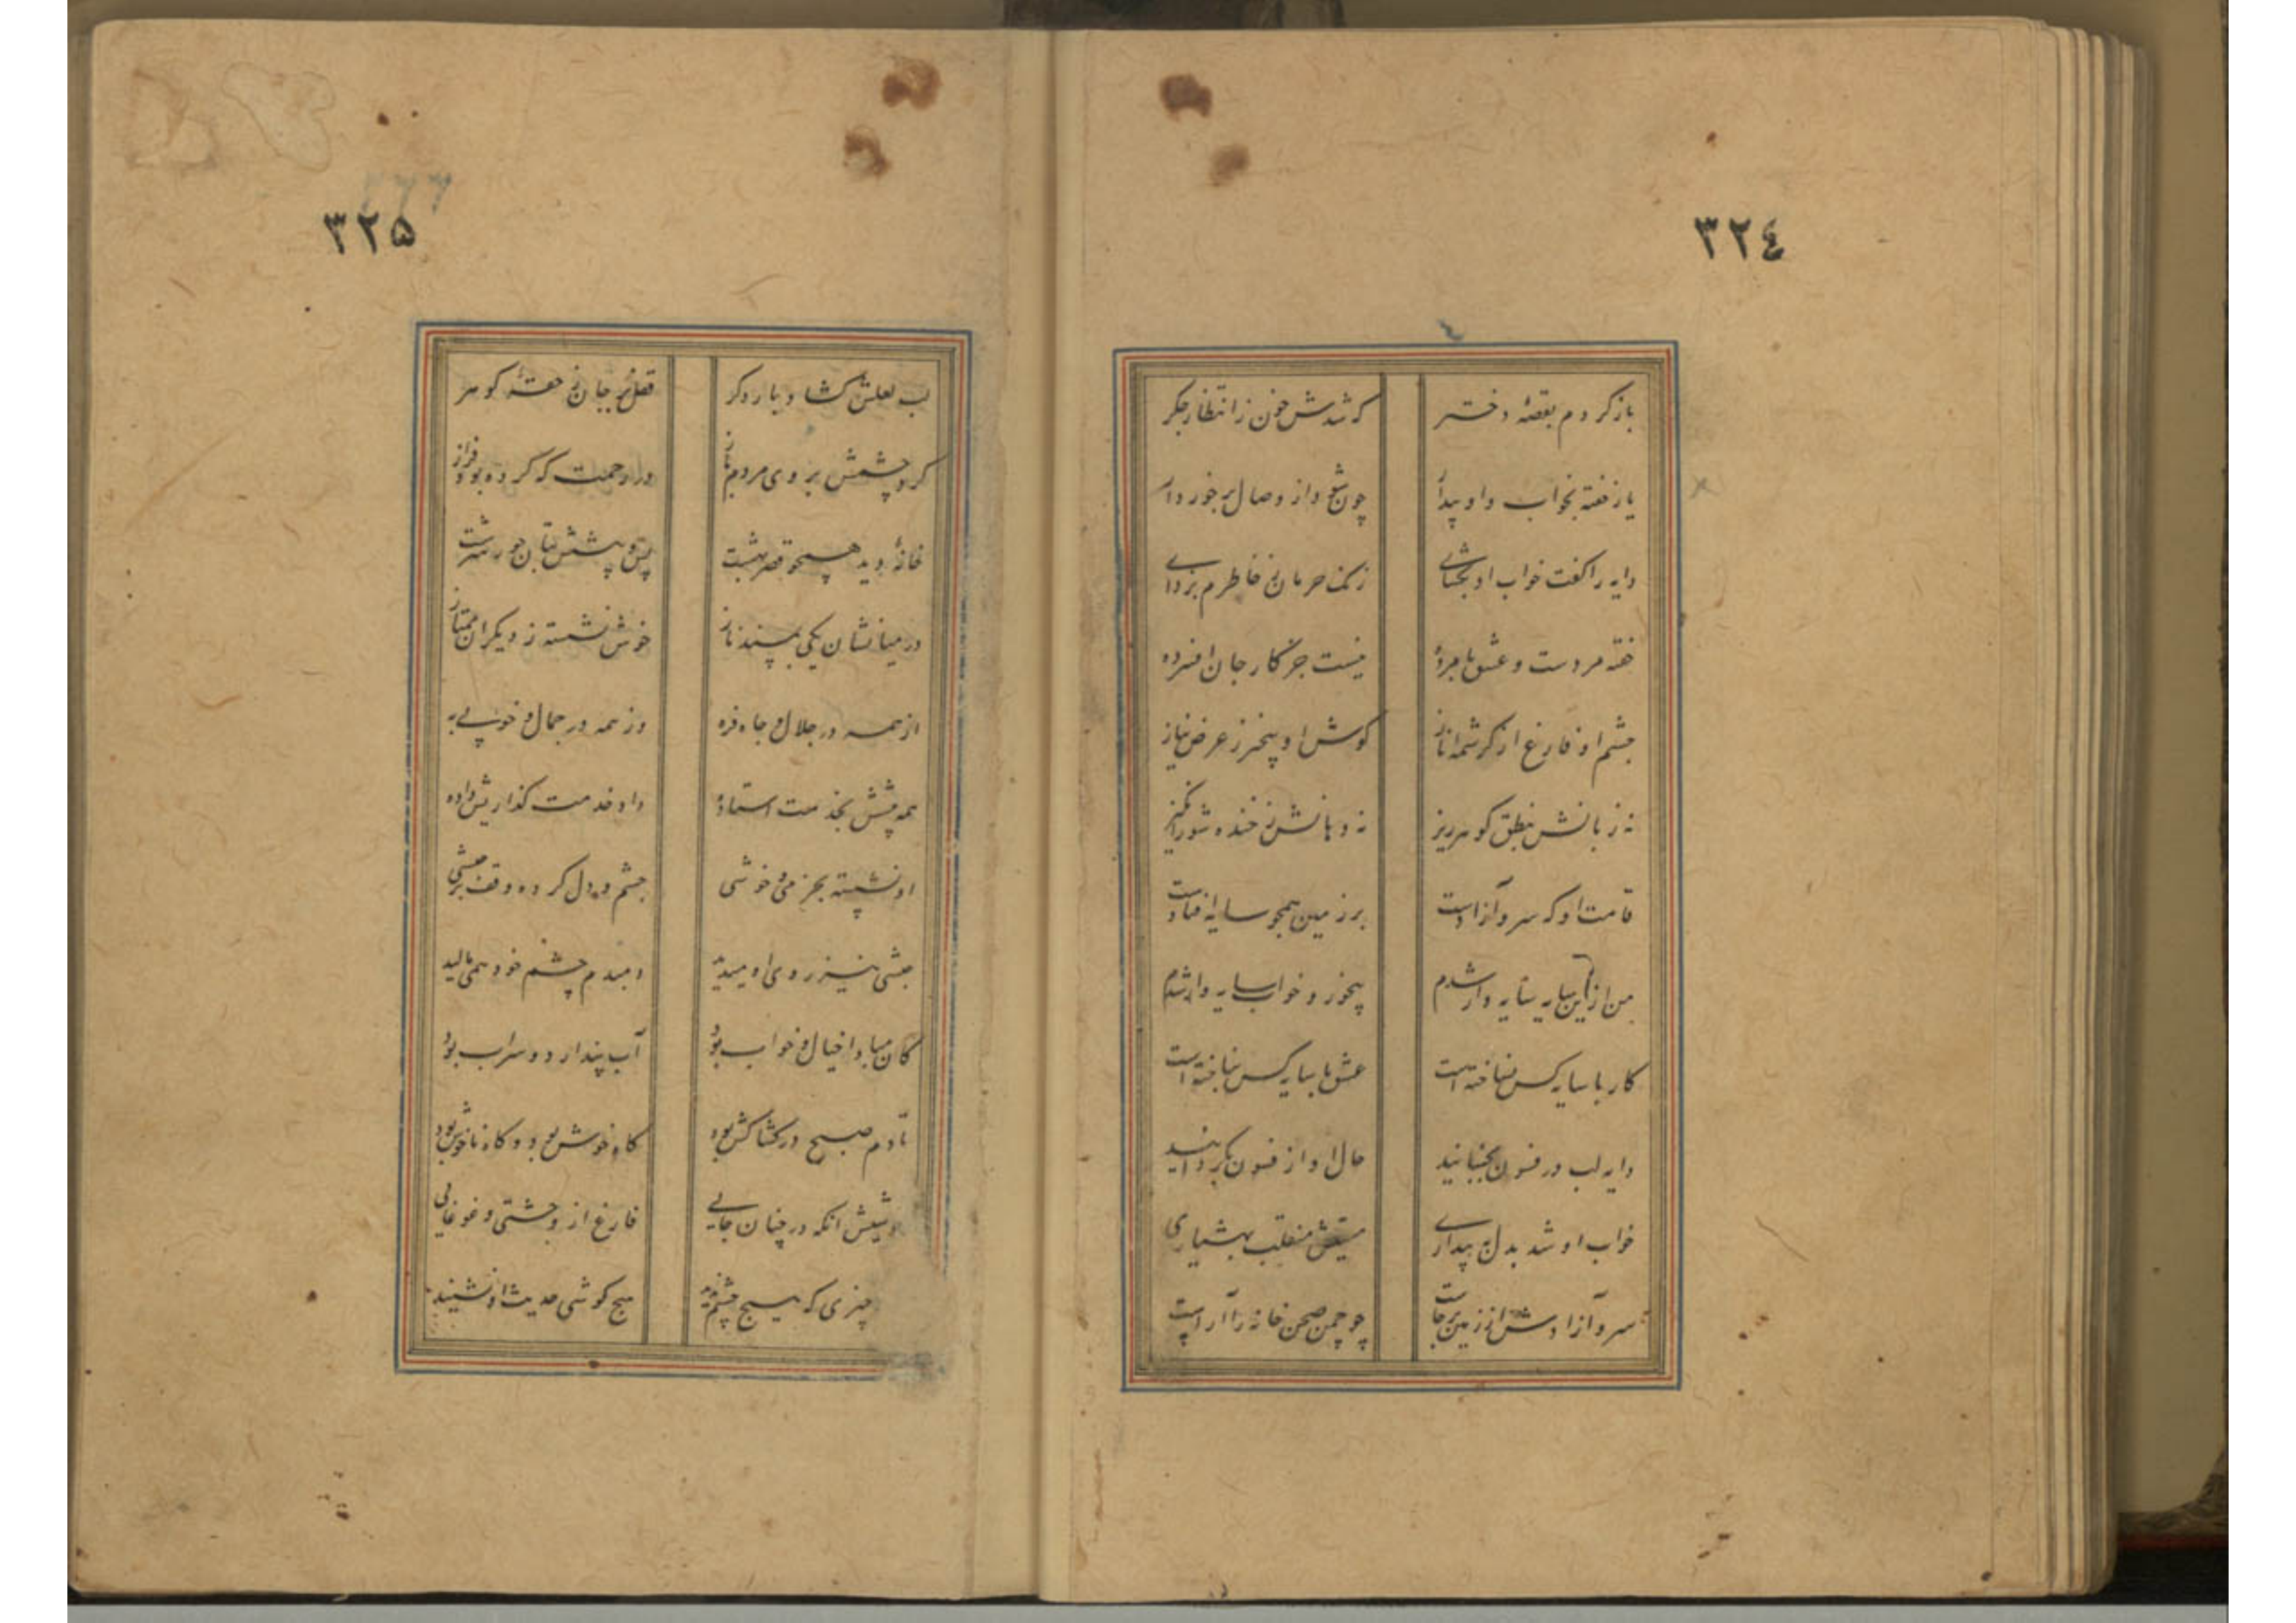 ۳۲۴
باز کردم بقصهٔ دختر
که شدش خون ز انتظار جگر
یار خفته بخواب و او بیدار
چون شود از وصال برخوردار
دایه را گفت خواب او بگشای
زنک حرمان ز خاطرم بزدای
خفته مردست و عشق با مرده
نیست جز کار جان افسرده
چشم او فارغ از کرشمه و ناز
گوش او بیخبر ز عرض نیاز
نه زبانش بنطق گوهرریز
نه دهانش ز خنده شورانگیز
قامت او که سرو آزادست
بر زمین همچو سایه افتادست
من ازین سایه سایه وار شدم
بیخور و خواب سایه وار شدم
کار با سایه کس نساخته است
عشق با سایه کس نباخته است
دایه لب در فسون بجنبانید
حال او از فسون بگردانید
خواب او شد بدل به بیداری
مستیش منقلب بهشیاری
سرو آزادش از زمین برخاست
چو چمن صحن خانه را آراست
۳۲۵
لب لعلش گشاد بار دگر
قفل مرجان ز حقهٔ گوهر
کرد چشمش بروی مردم باز
در رحمت که کرده بود فراز
خانهٔ دید همچو قصر بهشت
پس و پیشش بتان حور سرشت
در میانشان یکی بمسند ناز
خوش نشسته ز دیگران ممتاز
از همه در جلال و جاه فره
وز همه در جمال و خوبی به
همه پیشش بخدمت استاده
داد خدمت گذاریش داده
او نشسته بخرمی و خوشی
چشم و دل کرده وقف بر حبشی
حبشی نیز روی او میدید
دمبدم چشم خود همی مالید
کان مبادا خیال و خواب بود
آب پندارد و سراب بود
تا دم صبح در کشاکش بود
گاه خوش بود و گاه ناخوش بود
خوشیش آنکه در چنان جایی
فارغ از وحشتی و غوغایی
چیزی که هیچ چشم ندید
هیچ گوشی حدیث او نشنید